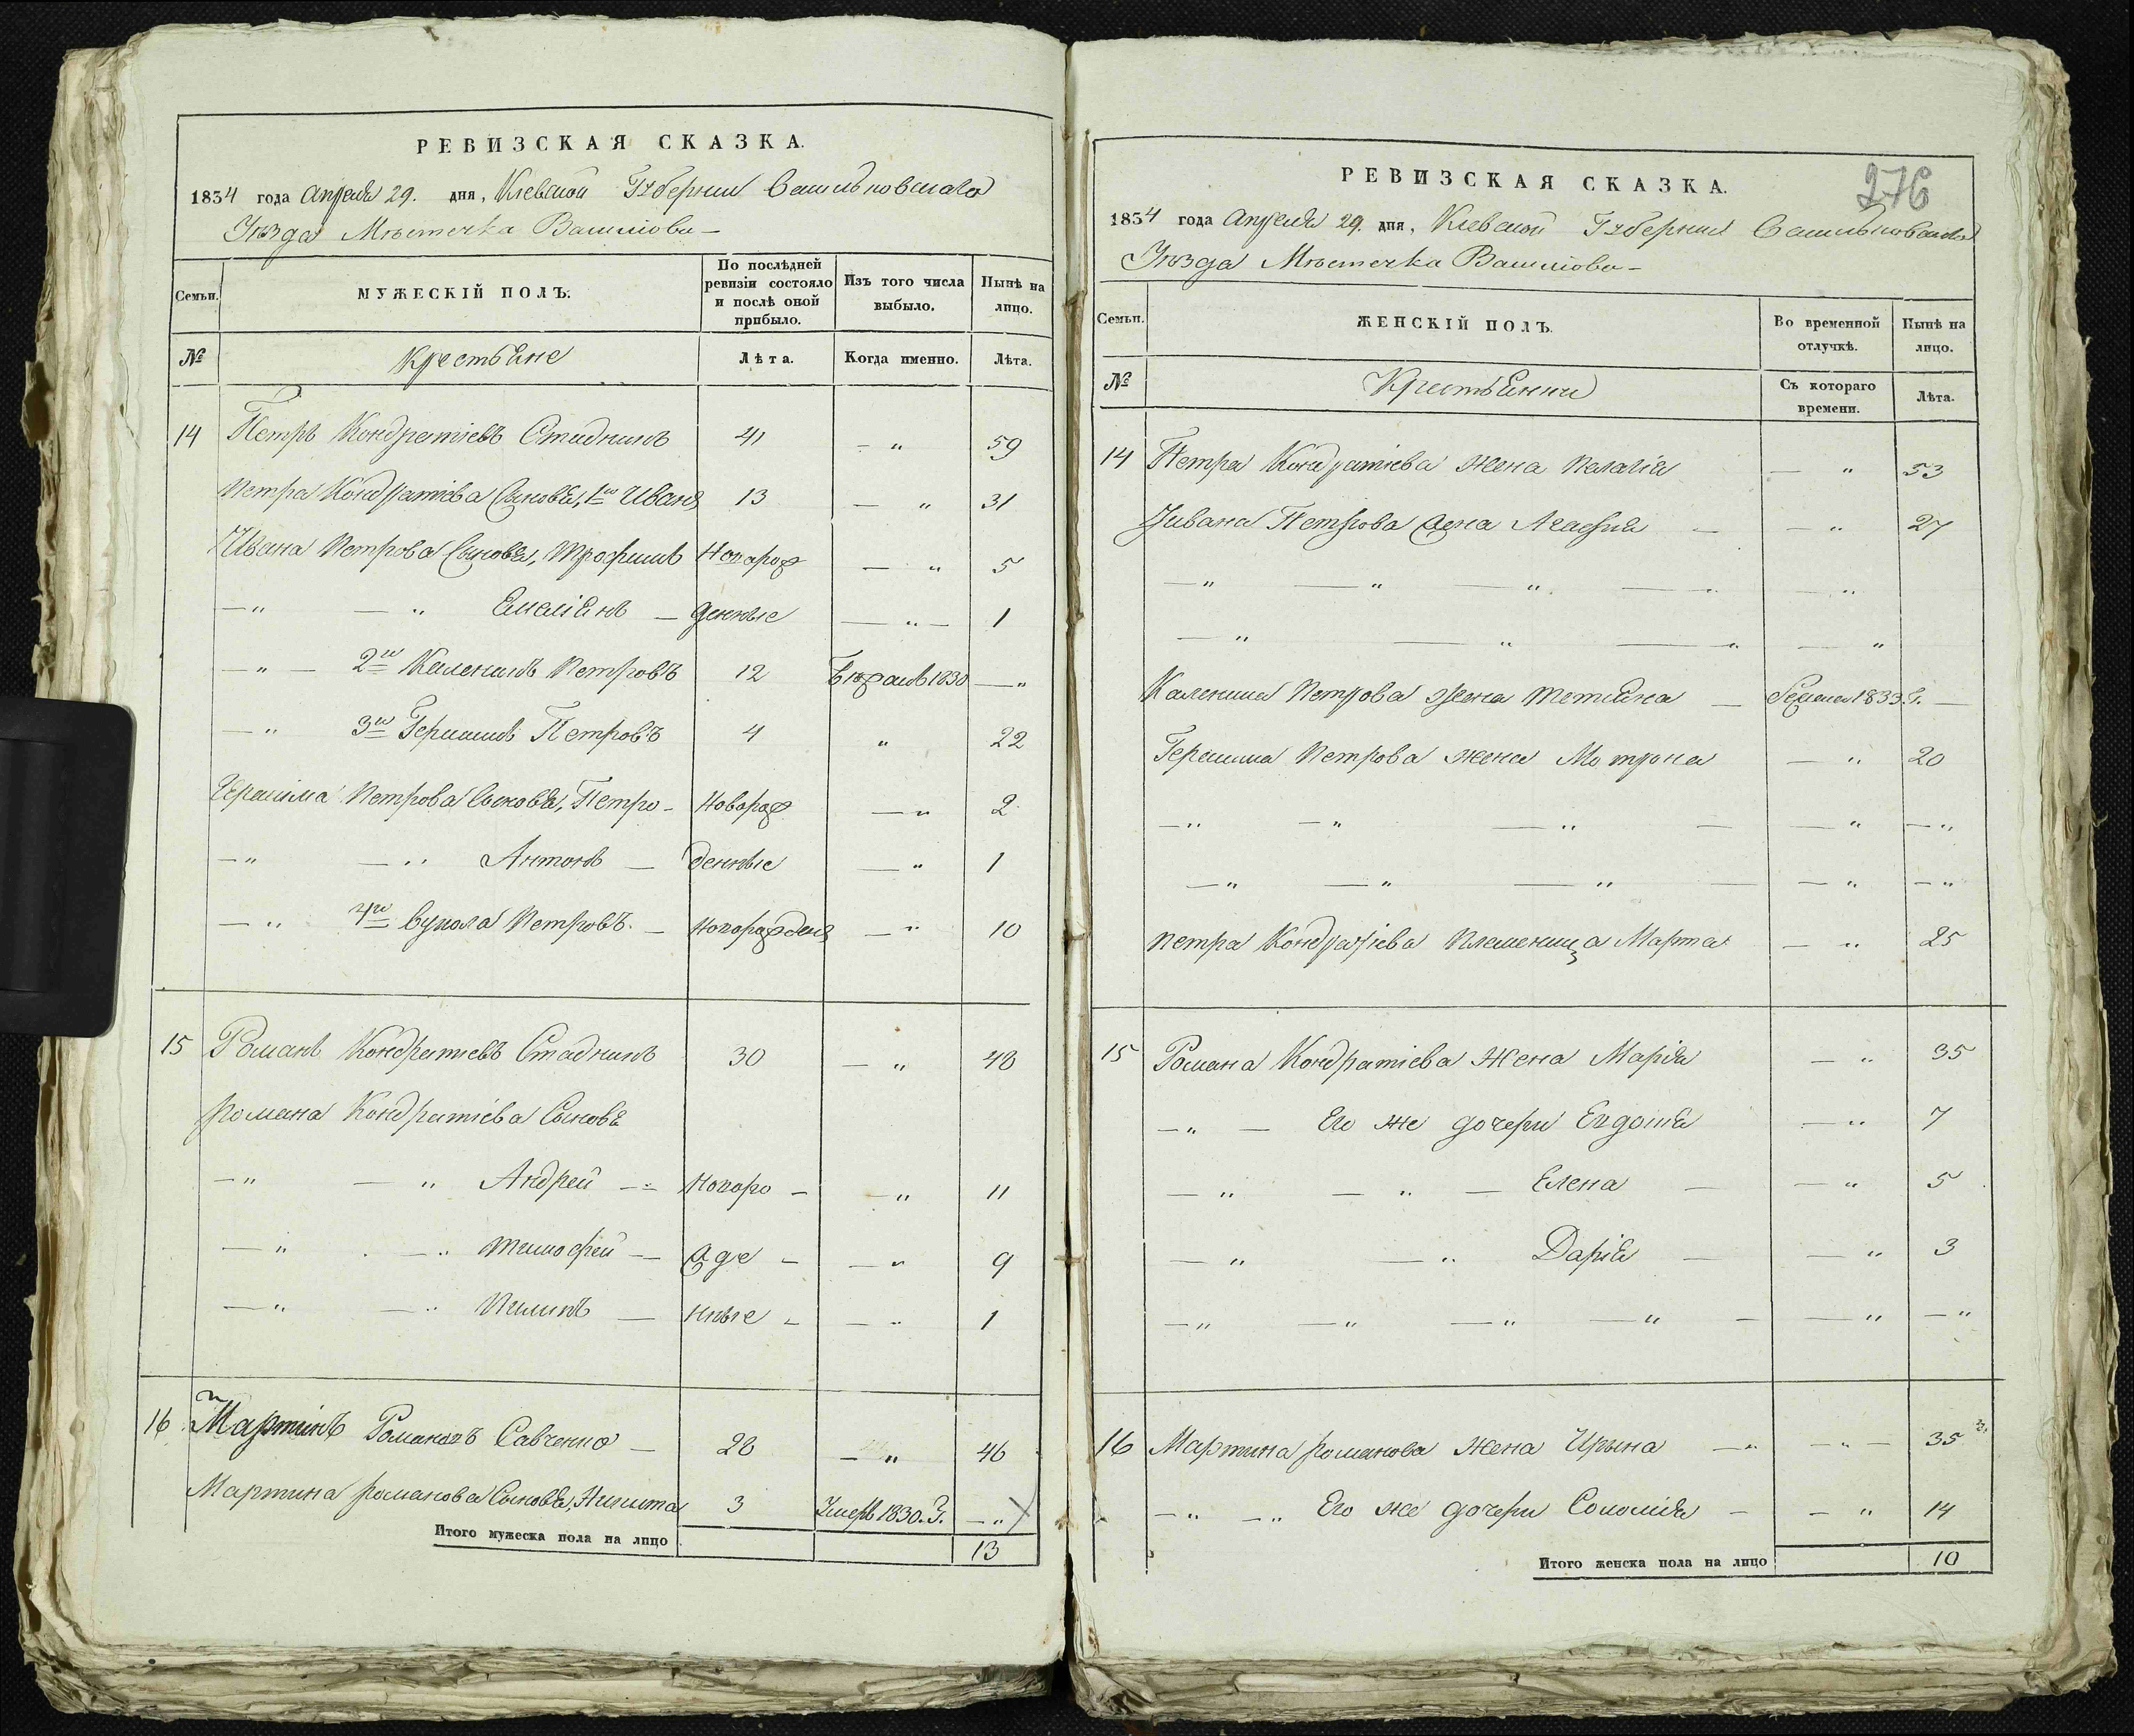 РЕВИЗСКАЯ СКАЗКА.
1834 года Апреля 29. дня, Киевской Губернии Васильковскаго
Уѣзда Мѣстечка
Семьи.
МУЖЕСКІЙ ПОЛЪ.
По послѣдней ревизіи состояло и послѣ оной прибыло.
Изъ того числа выбыло.
Нынѣ на лицо.
№
Крестьяне
Лѣта.
Когда именно.
Лѣта.
14 Петръ Кондратіевъ Стадникъ 41 — " 59
Петра Кондратіева Сыновья, 1й Иванъ 13 — " 31
Ивана Петрова Сыновья, Трофимъ Новорож — " 5
— " — " Емеліянъ — денные — " — 1
— " — 2й Каленикъ Петровъ 12 1830 — "
— " 3й Герасимъ Петровъ 4 " 22
Герасима Петрова Сыновья, Петро - Новорож — " 2
— " — " Антонъ — денные — " 1
— " 4й Вукола Петровъ. — Новорожден — " 10
15 Романъ Кондратіевъ Стадникъ 30 — " 48
Романа Кондратіева Сыновья
— " — " Андрей — " Новоро — — " 11
— " — " Тимофей — жде — — " 9
— " — " Пилипъ — нные — — " 1
16 Мартинъ Романовъ Савченко — 28 — " 46
Мартина Романова Сыновья, Никита 3 Умеръ 1830. Г. — "
Итого мужеска пола на лицо 13
276
РЕВИЗСКАЯ СКАЗКА.
1834 года Апреля 29. дня, Киевской Губернии Васильковскаго
Уѣзда Мѣстечка
Семьи.
ЖЕНСКІЙ ПОЛЪ.
Во временной отлучкѣ.
Нынѣ на лицо.
№
Крестьянки
Съ котораго времени.
Лѣта.
14 Петра Кондратіева жена Пелагія — " 53
Ивана Петрова жена Агафия — — " 27
— " — " — " — " — "
— " — " — " — "
Каленика Петрова жена Тетіяна — 1833 Г. —
Герасима Петрова жена Мотрона — " 20
— " — " — " — — " — "
— " — " — " — — " — "
Петра Кондратіева Племеница Марта — " 25
15 Романа Кондратіева Жена Марія — " 35
— " — Его же дочери Евдокія — " 7
— " — " — Елена — — " 5
— " — " Дарія — — " 3
— " — " — " — " — — " — "
16 Мартина Романова жена Ирына — " — " — 35
— " — " Его же дочери Соломія — — " 14
Итого женска пола на лицо 10